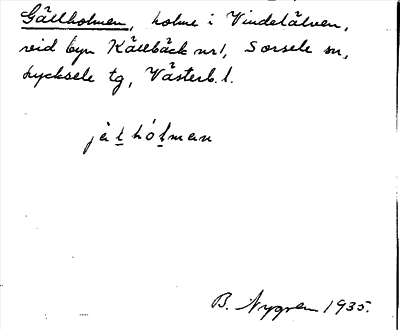 Gällholmen, holme i Vindelälven,
vid byn Källbäck nr 1, Sorsele sn,
Lycksele tg, Västerb. l.
jäḷhóḷman
B. Nygren 1935.